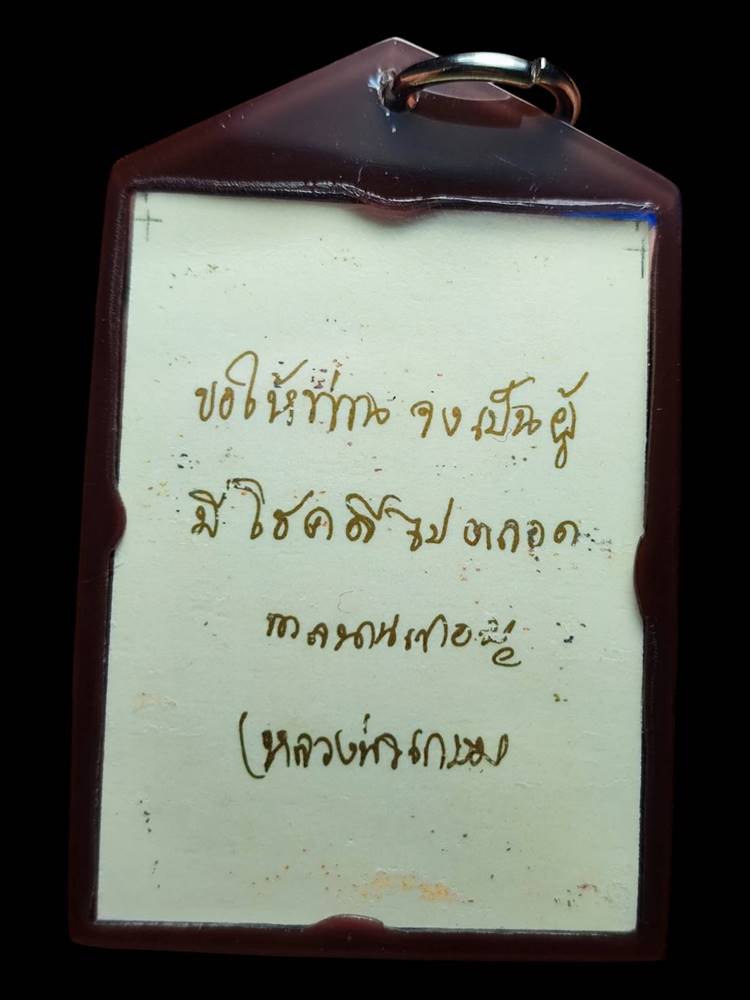 ขอให้ท่าน จงเป็นผู้
มีโชคดีไปตลอด
กาลนานเทอญ
(หลวงพ่อเกษม